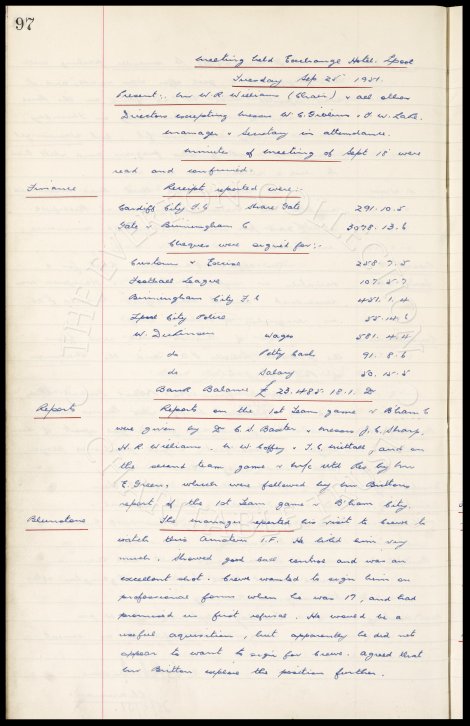 97
Meeting held Exchange Hotel. Lpool
Tuesday Sep 25' 1951.
Present:. Mr W.R. Williams (Chair) & all other
Directors excepting Messrs W.C. & F.W. Lake.
Manager & Secretary in attendance.
Minutes of Meeting of Sept 18' were
read and confirmed.
Finance Receipts reported were:-
Cardiff City F.C Share Gate 291.10.5
Gate v Birmingham C 3078.13.6
Cheques were signed for:-
Customs & Excise 258.7.5
Football League 107.5.7
Birmingham City F.C 451.1.4
Lpool City Police 55.14.6
W. Dickinson Wages 581.4.4
do Petty Cash 91.8.6
do Salary 50.15.5
Bank Balance £ 23.485.18.1. D
Reports Reports on the 1st Team game v B'ham C
were given by Dr C.S. Baxter & Messrs J.C. Sharp,
H.R. Williams. N.W. Coffey & T.C. Nuttall, and on
the second team game v Wolfe Wtd Res by Mr
E Green, which were followed by Mr Brittons
report, of the 1st Team game v B'ham City.
Blunstone The Manager reported his visit to Crewe to
watch this Amateur I.F. He liked him very
much. Showed good ball control and was an
excellent shot. Crewe wanted to sign him on
professional forms when he was 17, and had
promised us first refusal. He would be a
useful acquisition, but apparently he did not
appear to want to sign for Crewe. Agreed that
Mr Britton explore the position further.
THE EVERTON COLLECTION